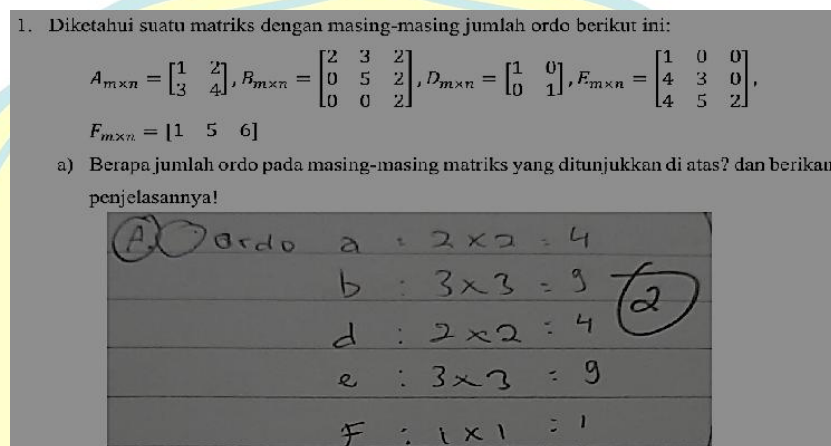 1. Diketahui suatu matriks dengan masing-masing jumlah ordo berikut ini:
A_{m×n} = [1 2; 3 4], B_{m×n} = [2 3 2; 0 5 2; 0 0 2], D_{m×n} = [1 0; 0 1], E_{m×n} = [1 0 0; 4 3 0; 4 5 2],
F_{m×n} = [1 5 6]
a) Berapa jumlah ordo pada masing-masing matriks yang ditunjukkan di atas? dan berikan
penjelasannya!
A. ordo a : 2 × 2 = 4
b : 3 × 3 = 9
2
d : 2 × 2 = 4
e : 3 × 3 = 9
F : 1 × 1 = 1